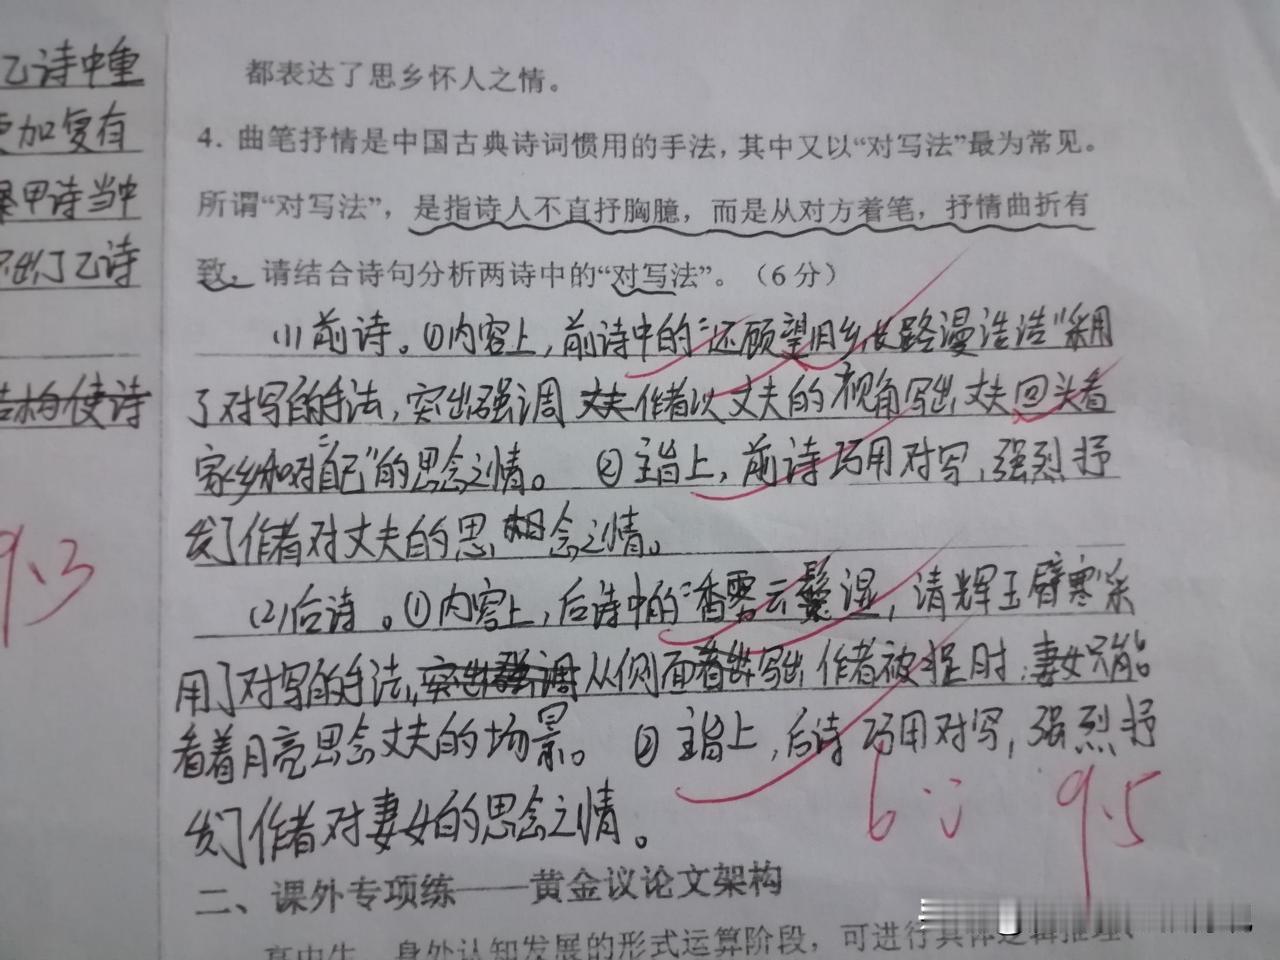 乙诗中重
更加复有
甲诗当中
了乙诗
使诗
9.3
都表达了思乡怀人之情。
4. 曲笔抒情是中国古典诗词惯用的手法，其中又以“对写法”最为常见。
所谓“对写法”，是指诗人不直抒胸臆，而是从对方着笔，抒情曲折有
致。请结合诗句分析两诗中的“对写法”。（6分）
(1)前诗。①内容上，前诗中的“还顾望旧乡，长路漫浩浩”采用
了对写的手法，突出强调 作者以丈夫的视角写出丈夫回头看
家乡和对“自己”的思念之情。 ②主旨上，前诗巧用对写，强烈抒
发了作者对丈夫的思念之情。
(2)后诗。①内容上，后诗中的“香雾云鬟湿，清辉玉臂寒”采
用了对写的手法，突出强调从侧面写出作者被捉时，妻女只能
看着月亮思念丈夫的场景。 ②主旨上，后诗巧用对写，强烈抒
发了作者对妻女的思念之情。
6
9.5
二、课外专项练——黄金议论文架构
高中生，身处认知发展的形式运算阶段，可进行具体逻辑推理、